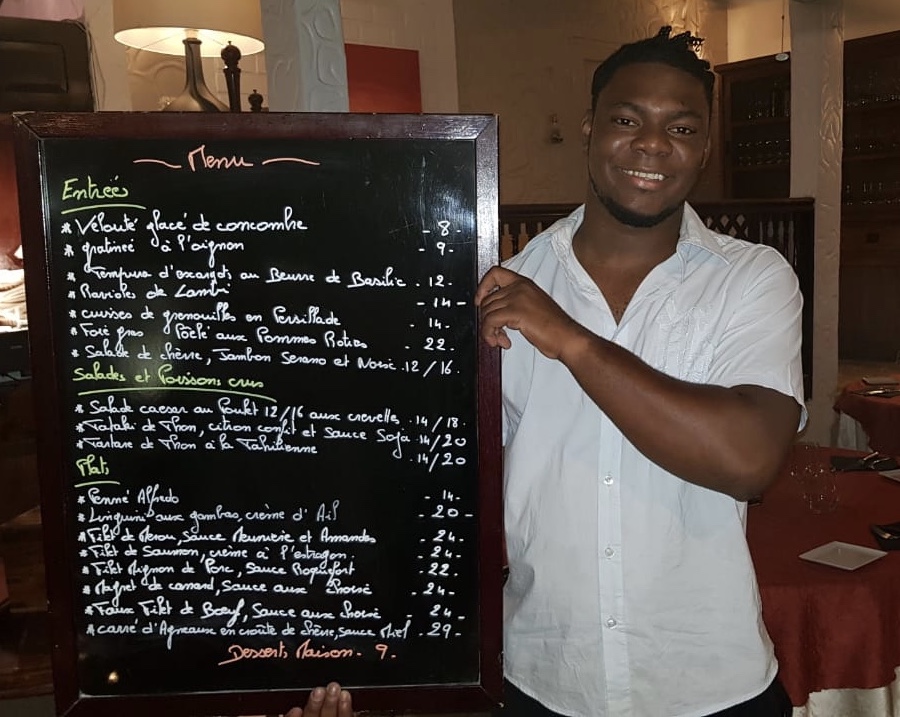 Menu
Entrées
* Velouté glacé de concombre - 8 -
* gratinée à l'oignon - 9 -
* Tempura d'escargots au Beurre de Basilic . 12 .
* Ravioles de Lambi - 14 -
* cuisses de grenouilles en Persillade . 14 .
* Foie gras Pôêlé aux Pommes Roties . 22 .
* Salade de chèvre, Jambon Serano et Noix . 12 / 16 .
Salades et Poissons crus
* Salade caesar au Poulet 12/16 aux crevettes . 14 / 18 .
* Tataki de Thon, citron confit et Sauce Soja . 14/20
* Tartare de Thon à la Tahitienne . 14/20
Plats
* Penné Alfredo - 14 -
* Linguini aux gambas, crème d'Ail - 20 -
* Filet de Merou, Sauce Meunière et Amandes - 24 -
* Filet de Saumon, crème à l'estragon . - 24 -
* Filet Mignon de Porc, Sauce Roquefort - 22 .
* Magret de canard, Sauce aux choix - 24 -
* Faux Filet de Boeuf, Sauce aux choix - 24 -
* carré d'Agneaux en croûte de chèvre, Sauce Miel . 29 -
Desserts Maison - 9 .